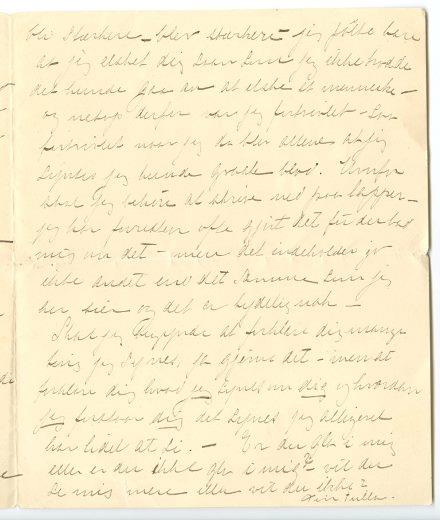 bli stærkere – blev stærkere – jeg følte bare
at jeg elsket dig saan som jeg ikke trodde
det kunde gaa an at elske et menneske –
og netop derfor var jeg fortvilet – saa
fortvilet naar jeg da blev allene at jeg
synes jeg kunde graate blod. Hvorfor
skal jeg behøve at skrive ned paa lapper –
jeg har foresten ofte gjort det før du bad
mig om det – men det indeholder jo
ikke andet end det samme som jeg
her sier og det er tydelig nok –
Skal jeg begynde at forklare dig mange
ting jeg synes, ja gjerne det – men at
forklare dig hvad jeg synes om dig og hvordan
jeg forstaar dig det synes jeg allikevel
har lidet at si. – Er du gla i mig
eller er du ikke gla i mig? vil du
se mig mere eller vil du ikke?
Din Tulla.